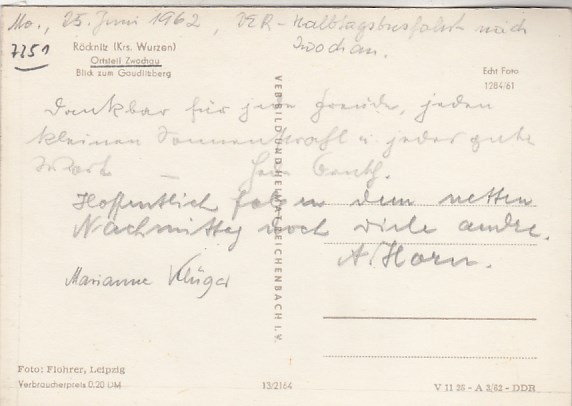 Mo., 25. Juni 1962, DER-Halbtagsbusfahrt nach
Zwochau.
7251
Röcknitz (Krs. Wurzen)
Ortsteil Zwochau
Blick zum Gaudlitzberg
Echt Foto
1284/61
Dankbar für jede Freude, jeden
kleinen Sonnenstrahl u. jedes gute
Wort —
Hoffentlich folgen dem netten
Nachmittag noch viele andre.
A. Horn.
Marianne Klüger
VEB BILD UND HEIMAT REICHENBACH I. V.
Foto: Flohrer, Leipzig
Verbraucherpreis 0.20 DM
13/2164
V 11 28 - A 3/62 - DDR